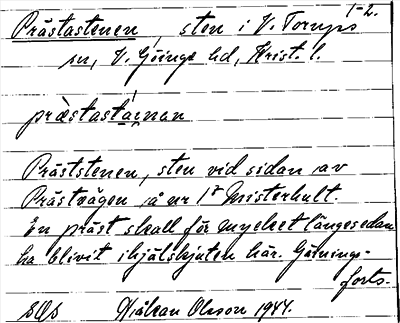 1-2.
Prästastenen, sten i V. Torups
sn, V. Göinge hd, Krist. l.
præ̀stastáinan
Präststenen, sten vid sidan av
Prästvägen å nr 17 Misterhult.
En präst skall för mycket längesedan
ha blivit ihjälskjuten här. Gärnings-
forts.
SOS Håkan Olsson 1944.